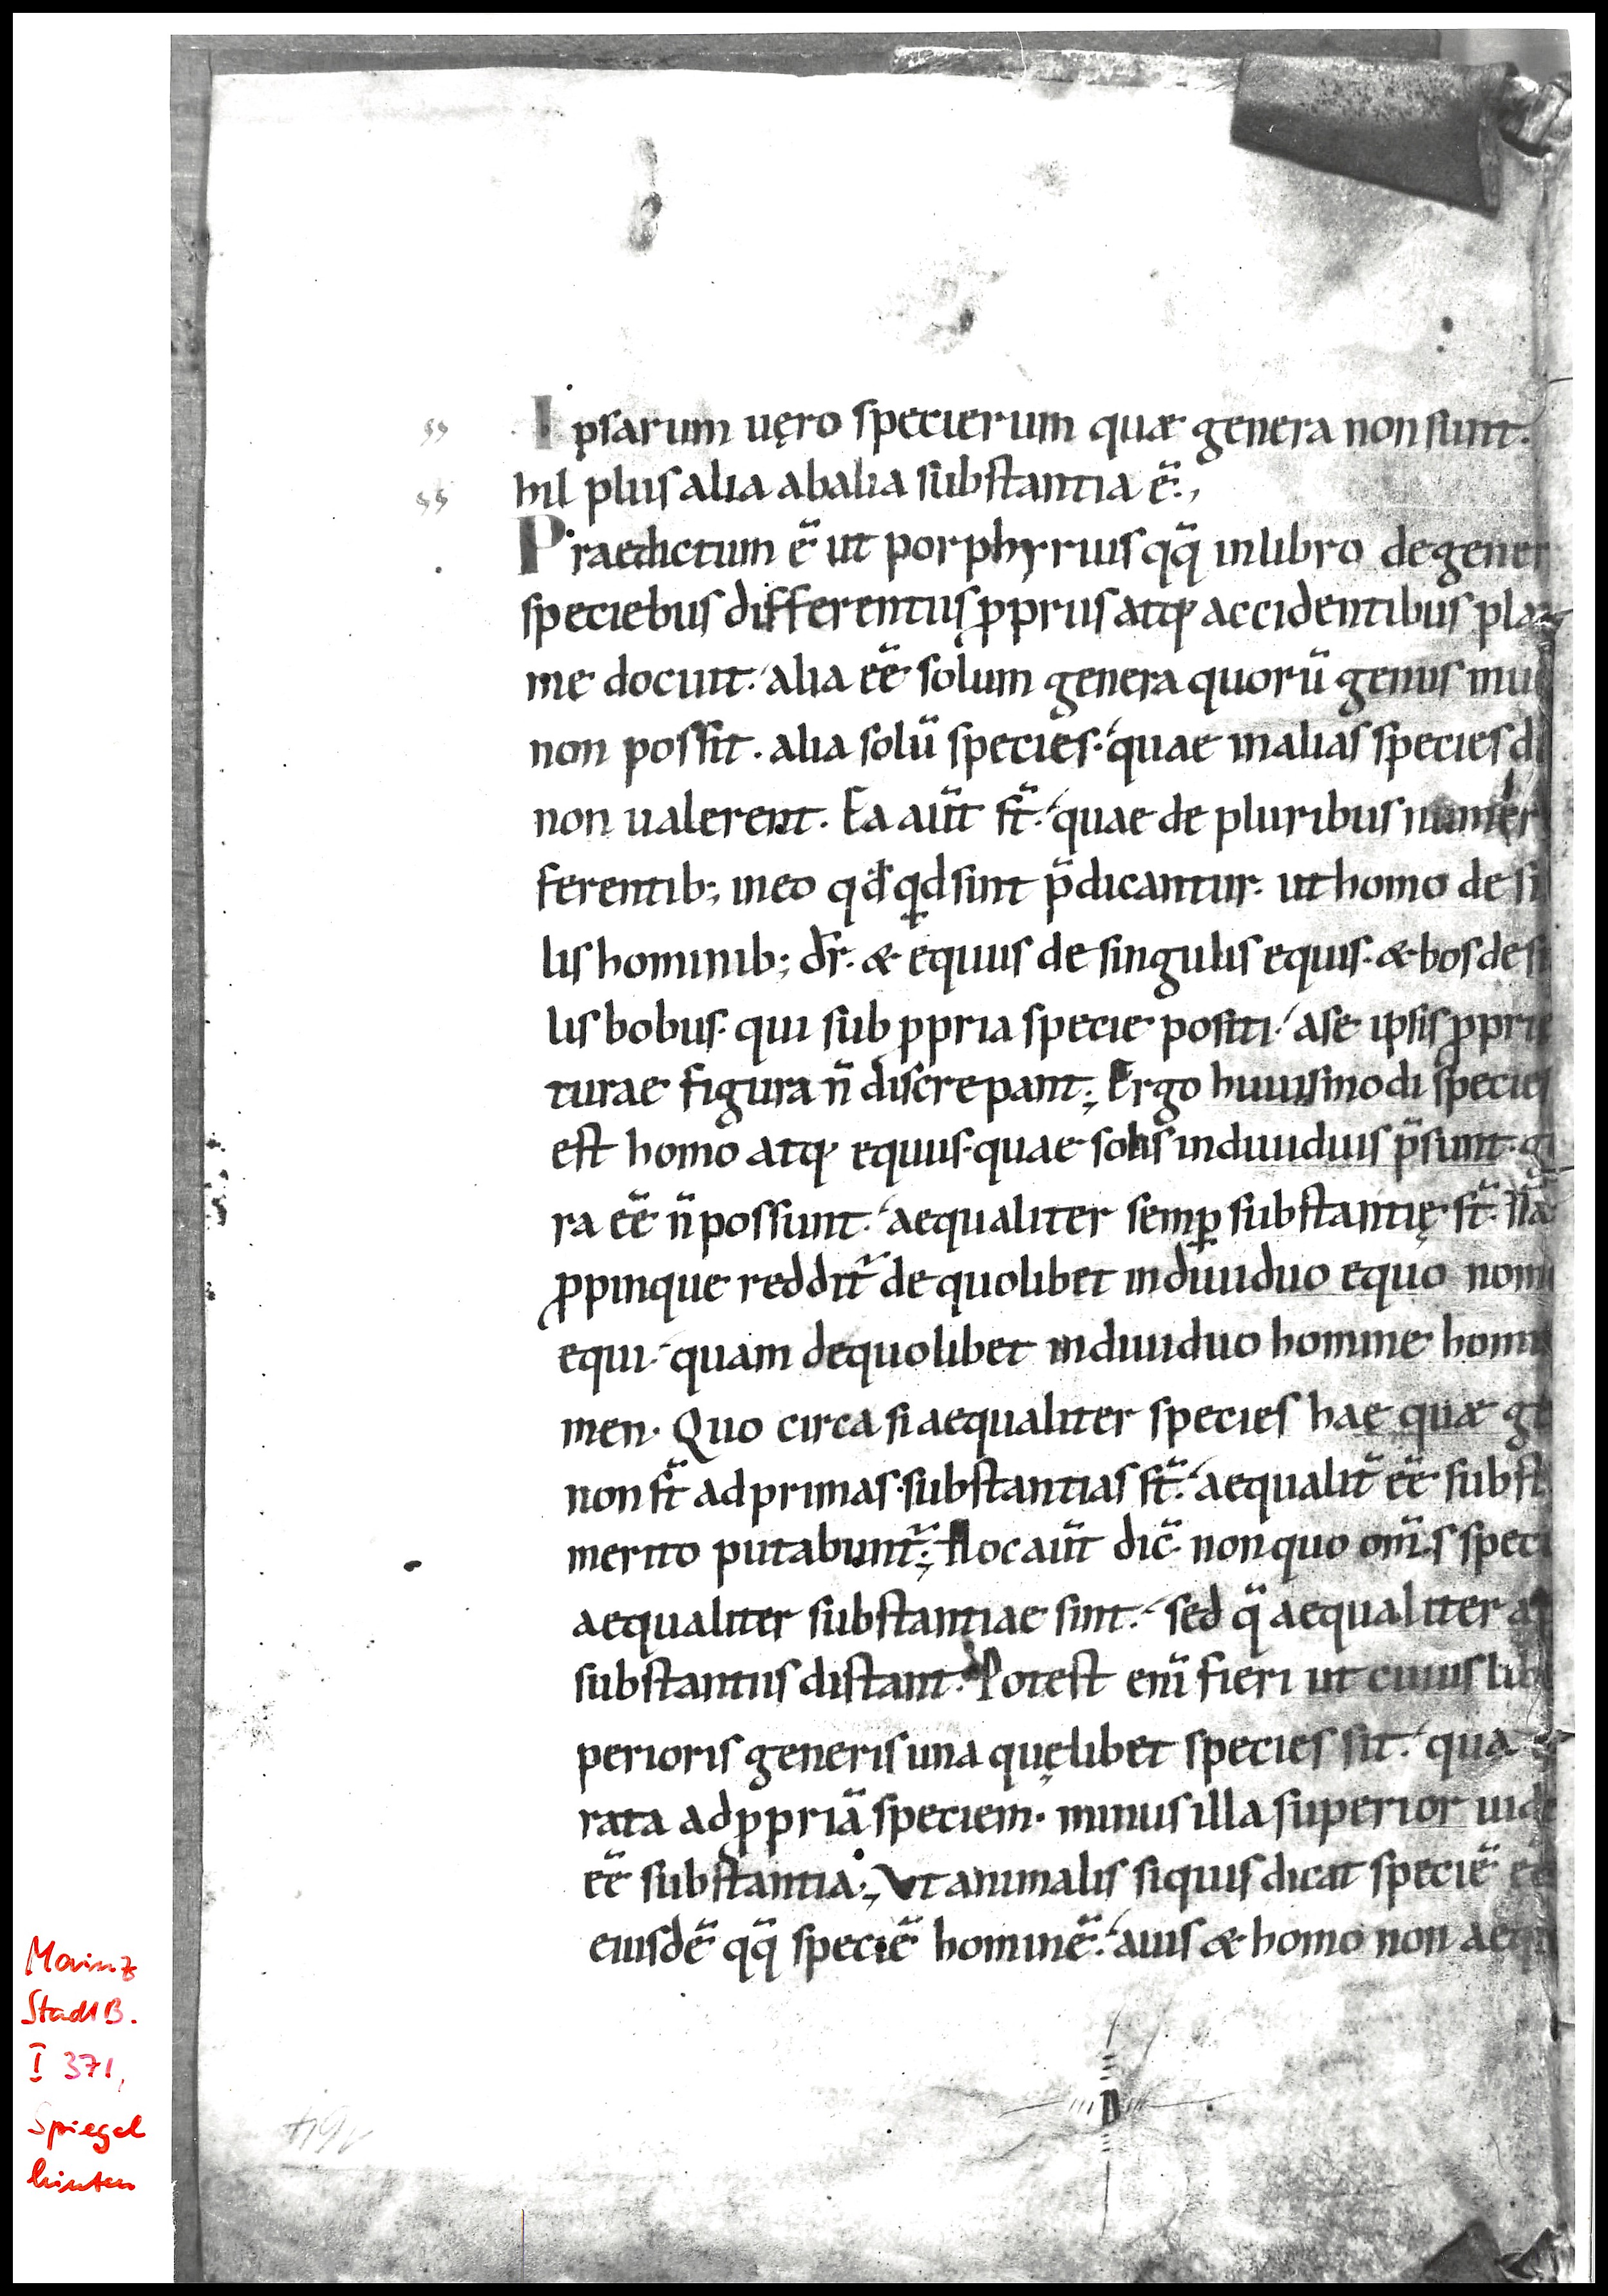 Ipsarum uęro specierum quæ genera non sunt.
hil plus alia ab alia substantia ē.,
Praedictum ē ut porphyrius qq̄ in libro de gener
speciebus differentiis ꝓpriis atq; accidentibus pla
me docuit. alia ēē solum genera quorū genus
non possit. alia solū species. quae in alias species di
non ualerent. Ea aūt st̄. quae de pluribus numer
ferentib; in eo qđ qđ sint p̄dicantur. ut homo de si
lis hominib; dr̄. & equus de singulis equis. & bos de si
lis bobus. qui sub ppria specie positi. a se ipsis ꝓprie
turae figura n̄ discrepant; Ergo huiusmodi species
est homo atq; equus. quae solis indiuiduis p̄sunt. g
ra ēē n̄ possunt. aequaliter semp̲ substantię st̄. Nā
ꝓpinque reddit̄ de quolibet indiuiduo equo nomi
equi. quam de quolibet indiuiduo homine homi
men. Quo circa si aequaliter species hae quæ ge
non st̄ ad primas substantias st̄. aequalit̄ ēē subst
merito putabunt̄; Hoc aūt dic̄. non quo om̄s speci
aequaliter substantiae sint. sed q̄ aequaliter a
substantiis distant. Potest enī fieri ut cuius lib
perioris generis una quęlibet species sit. qua
rata ad ꝓpriā speciem. minus illa superior uide
ēē substantia; Vt animalis si quis dicat speciē ēē
eiusdē qq̄ speciē hominē. auis & homo non aequ
Mainz
StadtB.
I 371,
Spiegel
hinten